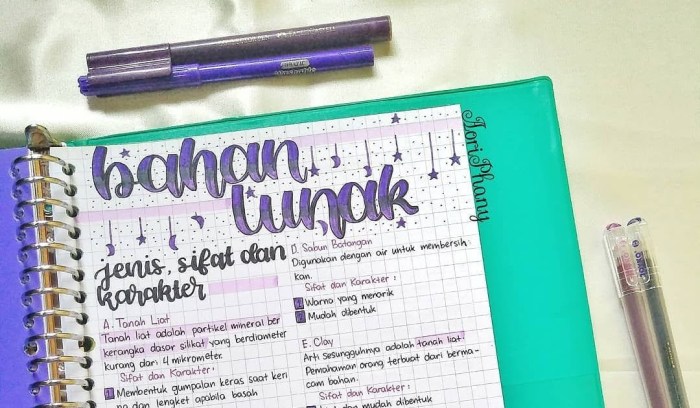 bahan
lunak
jenis, sifat dan
karakter
A. Tanah Liat
Tanah liat adalah partikel mineral ber
kerangka dasar silikat yang berdiameter
kurang dari 4 mikrometer.
Sifat dan Karakter:
1 Membentuk gumpalan keras saat keri
ng dan lengket apabila basah
D. Sabun Batangan
Digunakan dengan air untuk membersih
kan.
Sifat dan Karakter :
1 Warna yang menarik
2 Mudah dibentuk
E. Clay
Arti sesungguhnya adalah tanah liat.
Pemahaman orang terbuat dari berma-
cam bahan.
Sifat dan Karakter :
dan mudah dibentuk
JoriPhany